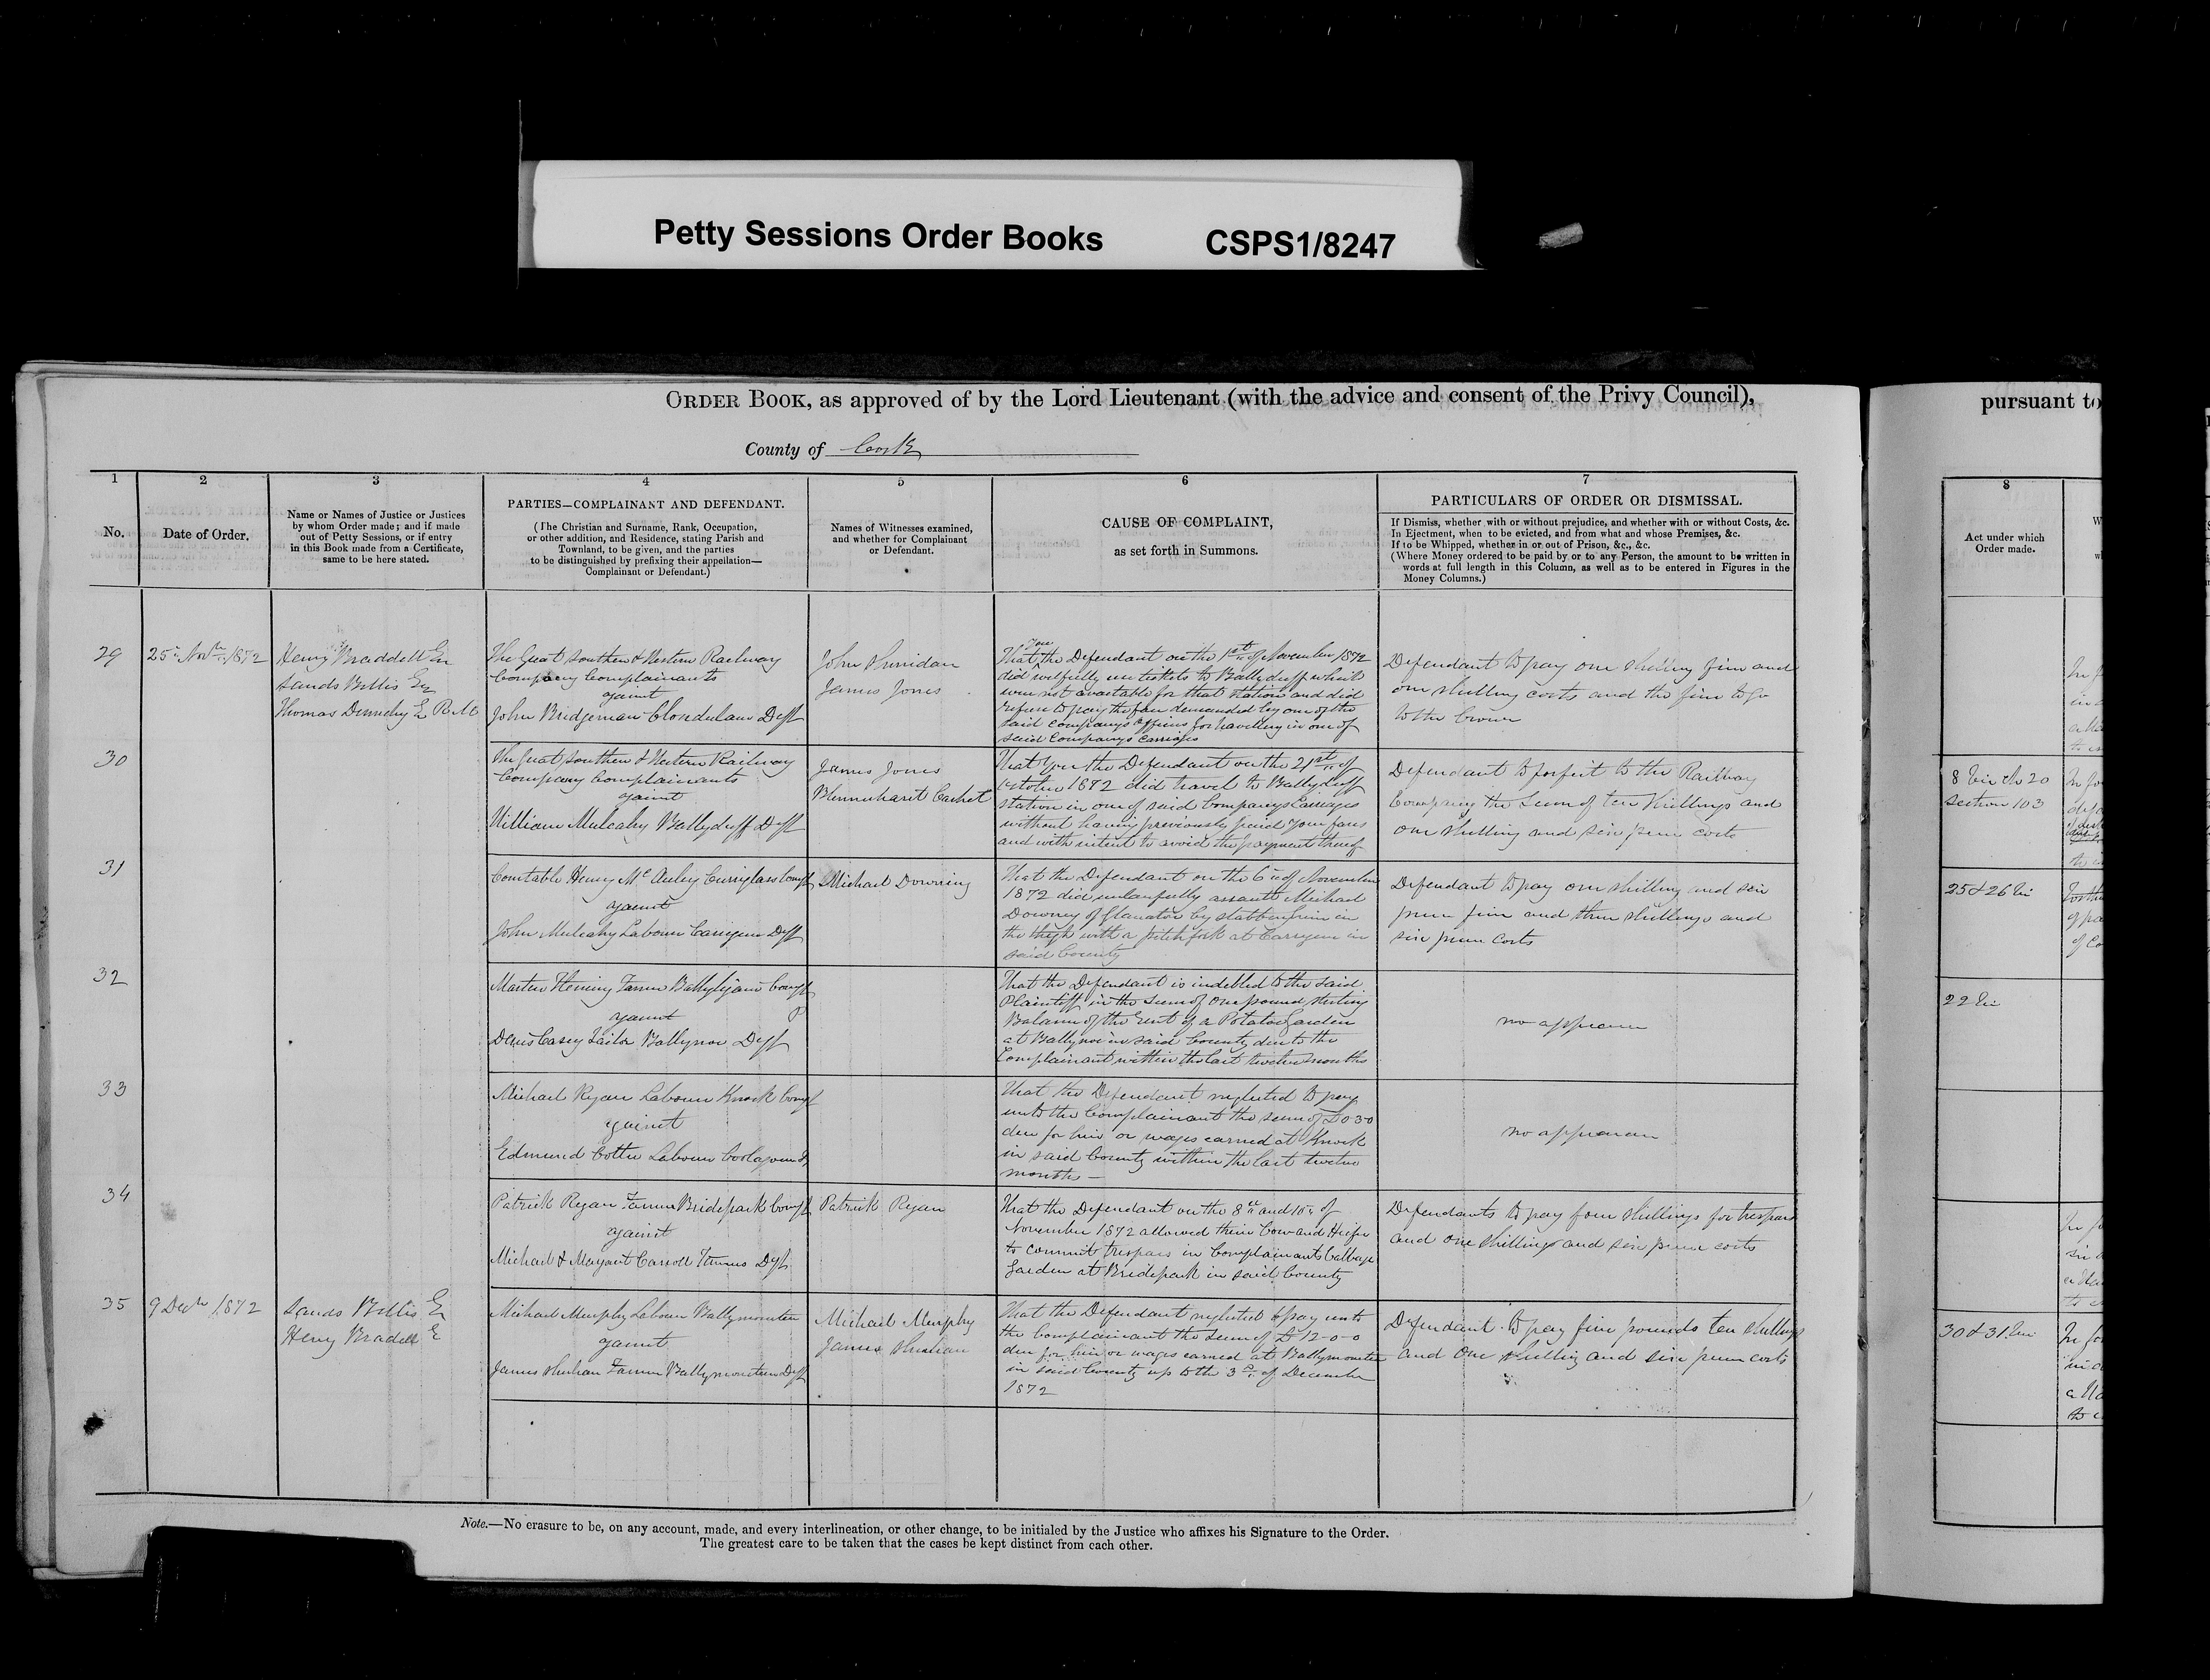 Petty Sessions Order Books CSPS1/8247
ORDER BOOK, as approved of by the Lord Lieutenant (with the advice and consent of the Privy Council),
pursuant to
County of Cork
1
No.
2
Date of Order.
3
Name or Names of Justice or Justices
by whom Order made; and if made
out of Petty Sessions, or if entry
in this Book made from a Certificate,
same to be here stated.
4
PARTIES—COMPLAINANT AND DEFENDANT.
(The Christian and Surname, Rank, Occupation,
or other addition, and Residence, stating Parish and
Townland, to be given, and the parties
to be distinguished by prefixing their appellation—
Complainant or Defendant.)
5
Names of Witnesses examined,
and whether for Complainant
or Defendant.
6
CAUSE OF COMPLAINT,
as set forth in Summons.
7
PARTICULARS OF ORDER OR DISMISSAL.
If Dismiss, whether with or without prejudice, and whether with or without Costs, &c.
In Ejectment, when to be evicted, and from what and whose Premises, &c.
If to be Whipped, whether in or out of Prison, &c., &c.
(Where Money ordered to be paid by or to any Person, the amount to be written in
words at full length in this Column, as well as to be entered in Figures in the
Money Columns.)
8
Act under which
Order made.
29
25th Novr 1872
Henry Braddell Esq
Sands Bellis Esq
Thomas Dennehy Esq R.M.
The Great Southern & Western Railway
Company Complainants
against
John Bridgeman Deft
John Sheridan
James Jones
That you the Defendant on the 1st of November 1872
did wilfully use tickets to Ballyduff which
were not available for that Station and did
refuse to pay the fare demanded by one of the
said Companys officers for travelling in one of
said Companys Carriages
Defendant to pay one shilling fine and
one shilling costs and the fine to go
to the Crown
30
The Great Southern & Western Railway
Company Complainants
against
William Mulcahy Ballyduff Deft
James Jones
That you the Defendant on the 21st of
October 1872 did travel to Ballyduff
station in one of said Companys Carriages
without having previously paid your fare
and with intent to avoid the payment thereof
Defendant to forfeit to the Railway
Company the Sum of ten shillings and
one shilling and six pence costs
8 Vic ch 20
section 103
31
Constable Henry Mc Auley Curriglass Compt
against
John Mulcahy Labourer Deft
Michael Downing
That the Defendant on the 6th of November
1872 did unlawfully assault Michael
Downey of by stabbing him in
the thigh with a pitch fork at in
said County
Defendant to pay one shilling and six
pence fine and three shillings and
six pence costs
25 & 26 Vic
32
Martin Fleming Farmer Compt
against
Denis Casey Tailor Ballynoe Deft
That the Defendant is indebted to the said
Plaintiff in the sum of one pound sterling
Balance of the Rent of a Potatoe Garden
at Ballynoe in said County due to the
Complainant within the last twelve months
no appearance
22 Vic
33
Michael Ryan Labourer Knock Compt
against
Edmund Cotter Labourer
That the Defendant neglected to pay
unto the Complainant the sum of £0 3-0
due for hire or wages earned at Knock
in said County within the last twelve
months —
no appearance
34
Patrick Ryan Farmer Bridepark Compt
against
Michael & Margaret Carroll Farmers Defts
Patrick Ryan
That the Defendant on the 8th and 10th of
November 1872 allowed their Cow and Heifer
to commit trespass in Complainants Cabbage
Garden at Bridepark in said County
Defendants to pay four shillings for trespass
and one shilling and six pence costs
35
9 Decr 1872
Sands Bellis Esq
Henry Bradell Esq
Michael Murphy Labourer Ballymonteen
against
James Sheehan Farmer Ballymonteen Deft
Michael Murphy
James Sheehan
That the Defendant neglected to pay unto
the Complainant the sum of £12-0-0
due for hire or wages earned at Ballymonteen
in said County up to the 3rd of December
1872
Defendant to pay five pounds ten shillings
and one shilling and six pence costs
30 & 31 Vic
Note.—No erasure to be, on any account, made, and every interlineation, or other change, to be initialed by the Justice who affixes his Signature to the Order.
The greatest care to be taken that the cases be kept distinct from each other.